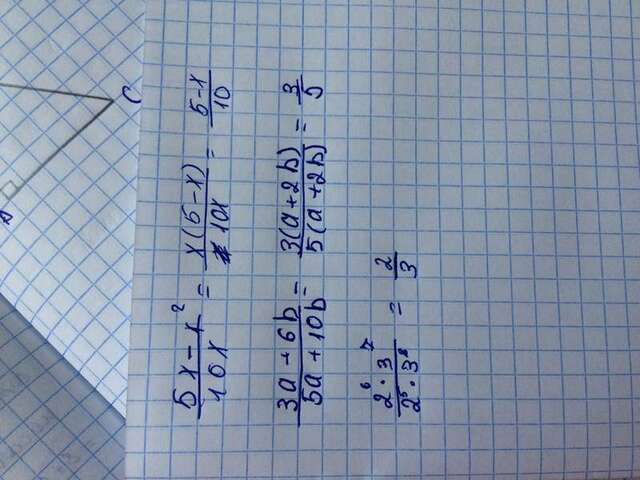 (5x - x²)/(10x) = (x(5-x))/(10x) = (5-x)/10
(3a + 6b)/(5a + 10b) = (3(a+2b))/(5(a+2b)) = 3/5
(2⁶ · 3⁷)/(2⁵ · 3⁸) = 2/3
C